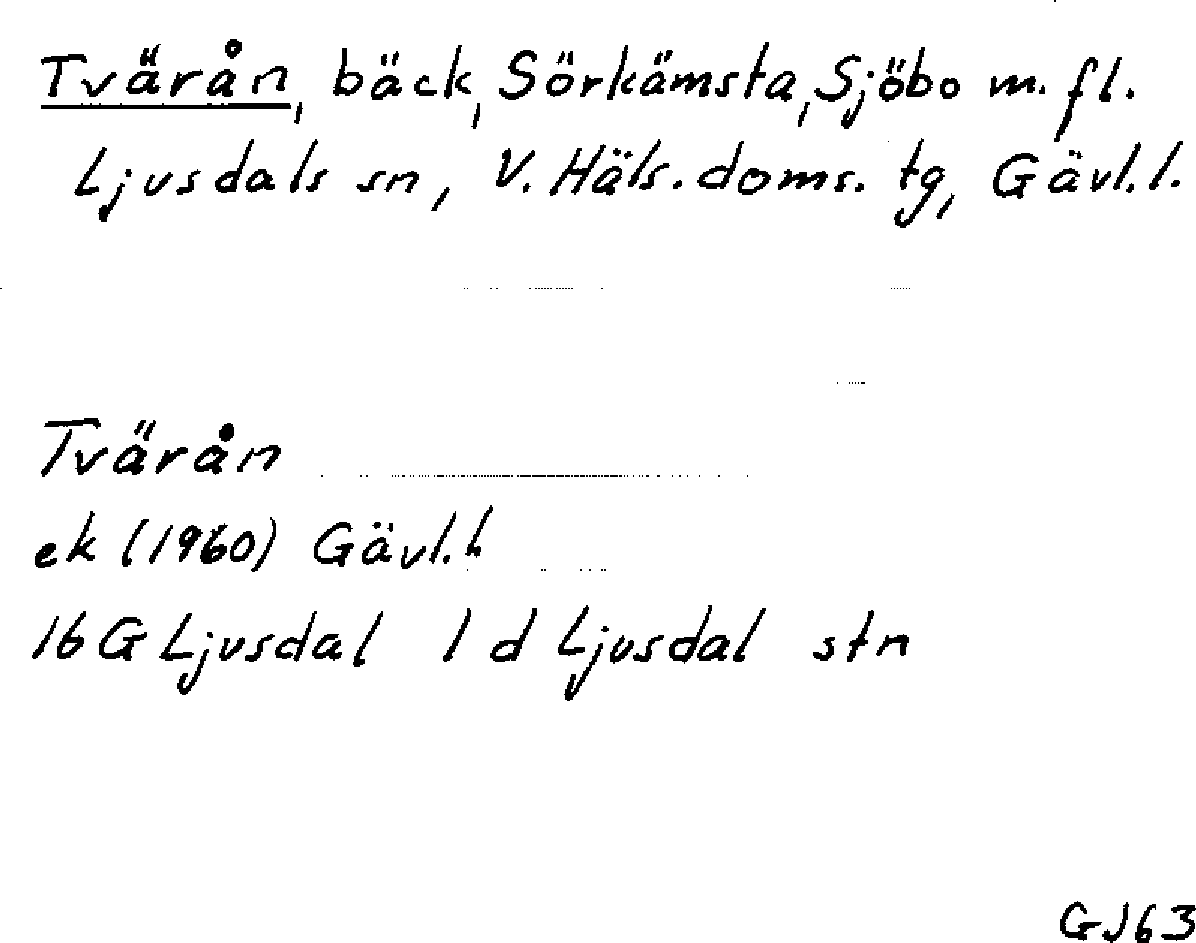 Tvärån, bäck, Sörkämsta, Sjöbo m. fl.
Ljusdals sn, V. Häls. doms. tg, Gävl. l.
Tvärån
ek (1960) Gävl. l.
16 G Ljusdal 1 d Ljusdal stn
GJ63